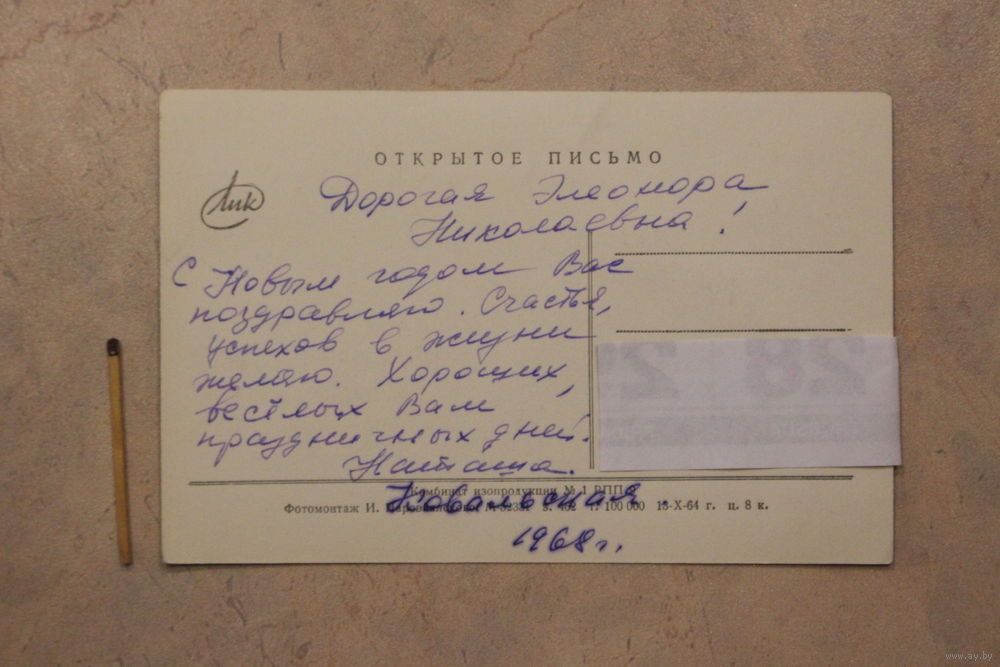 ОТКРЫТОЕ ПИСЬМО
Лик
Дорогая Элеонора
Николаевна!
С Новым годом Вас
поздравляю. Счастья,
успехов в жизни
желаю. Хороших,
весёлых Вам
праздничных дней.
Наташа.
Комбинат изопродукции № 1
Ковальская.
Фотомонтаж И. Т. 100 000 13-X-64 г. ц. 8 к.
1968 г.
www.ay.by